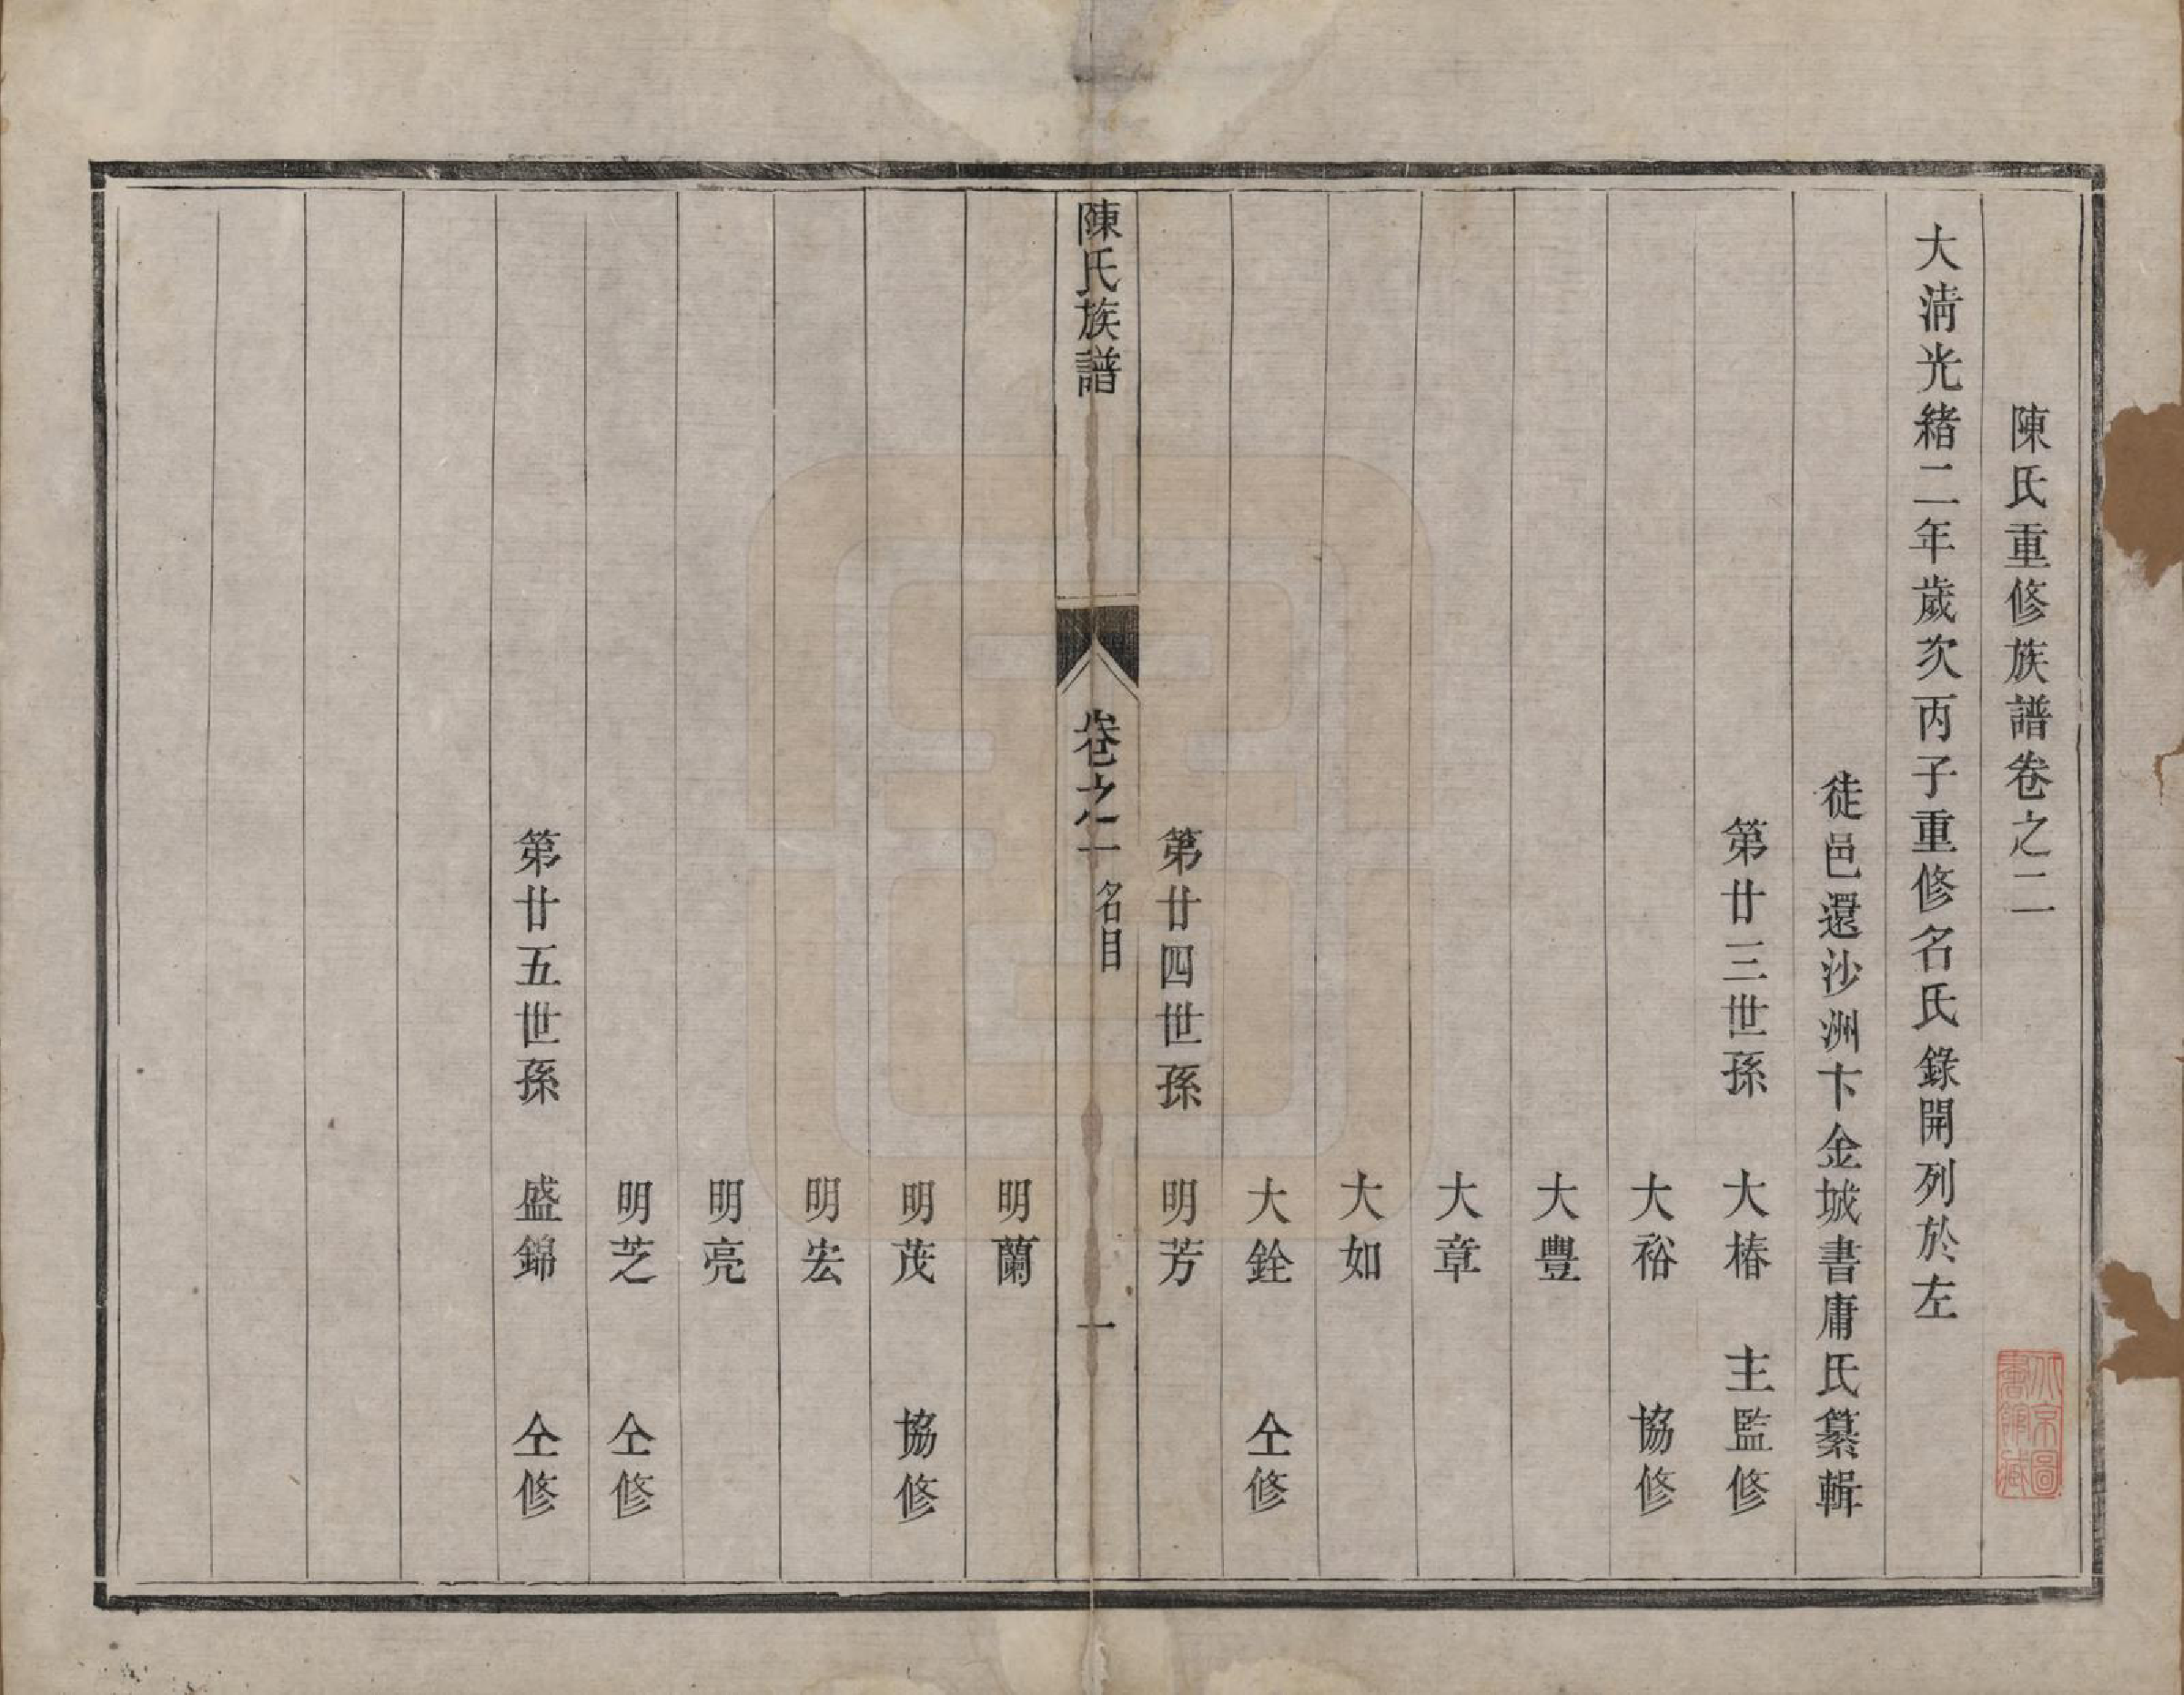 陳氏重修族譜卷之二
大清光緒二年歲次丙子重修名氏錄開列於左
徒邑還沙洲卞金城書庸氏纂輯
第廿三世孫 大椿 主監修
大裕 協修
大豐
大章
大如
大銓 仝修
第廿四世孫 明芳
陳氏族譜 卷之二 名目 一
明蘭
明茂 協修
明宏
明亮
明芝 仝修
第廿五世孫 盛錦 仝修
北京圖
書館藏